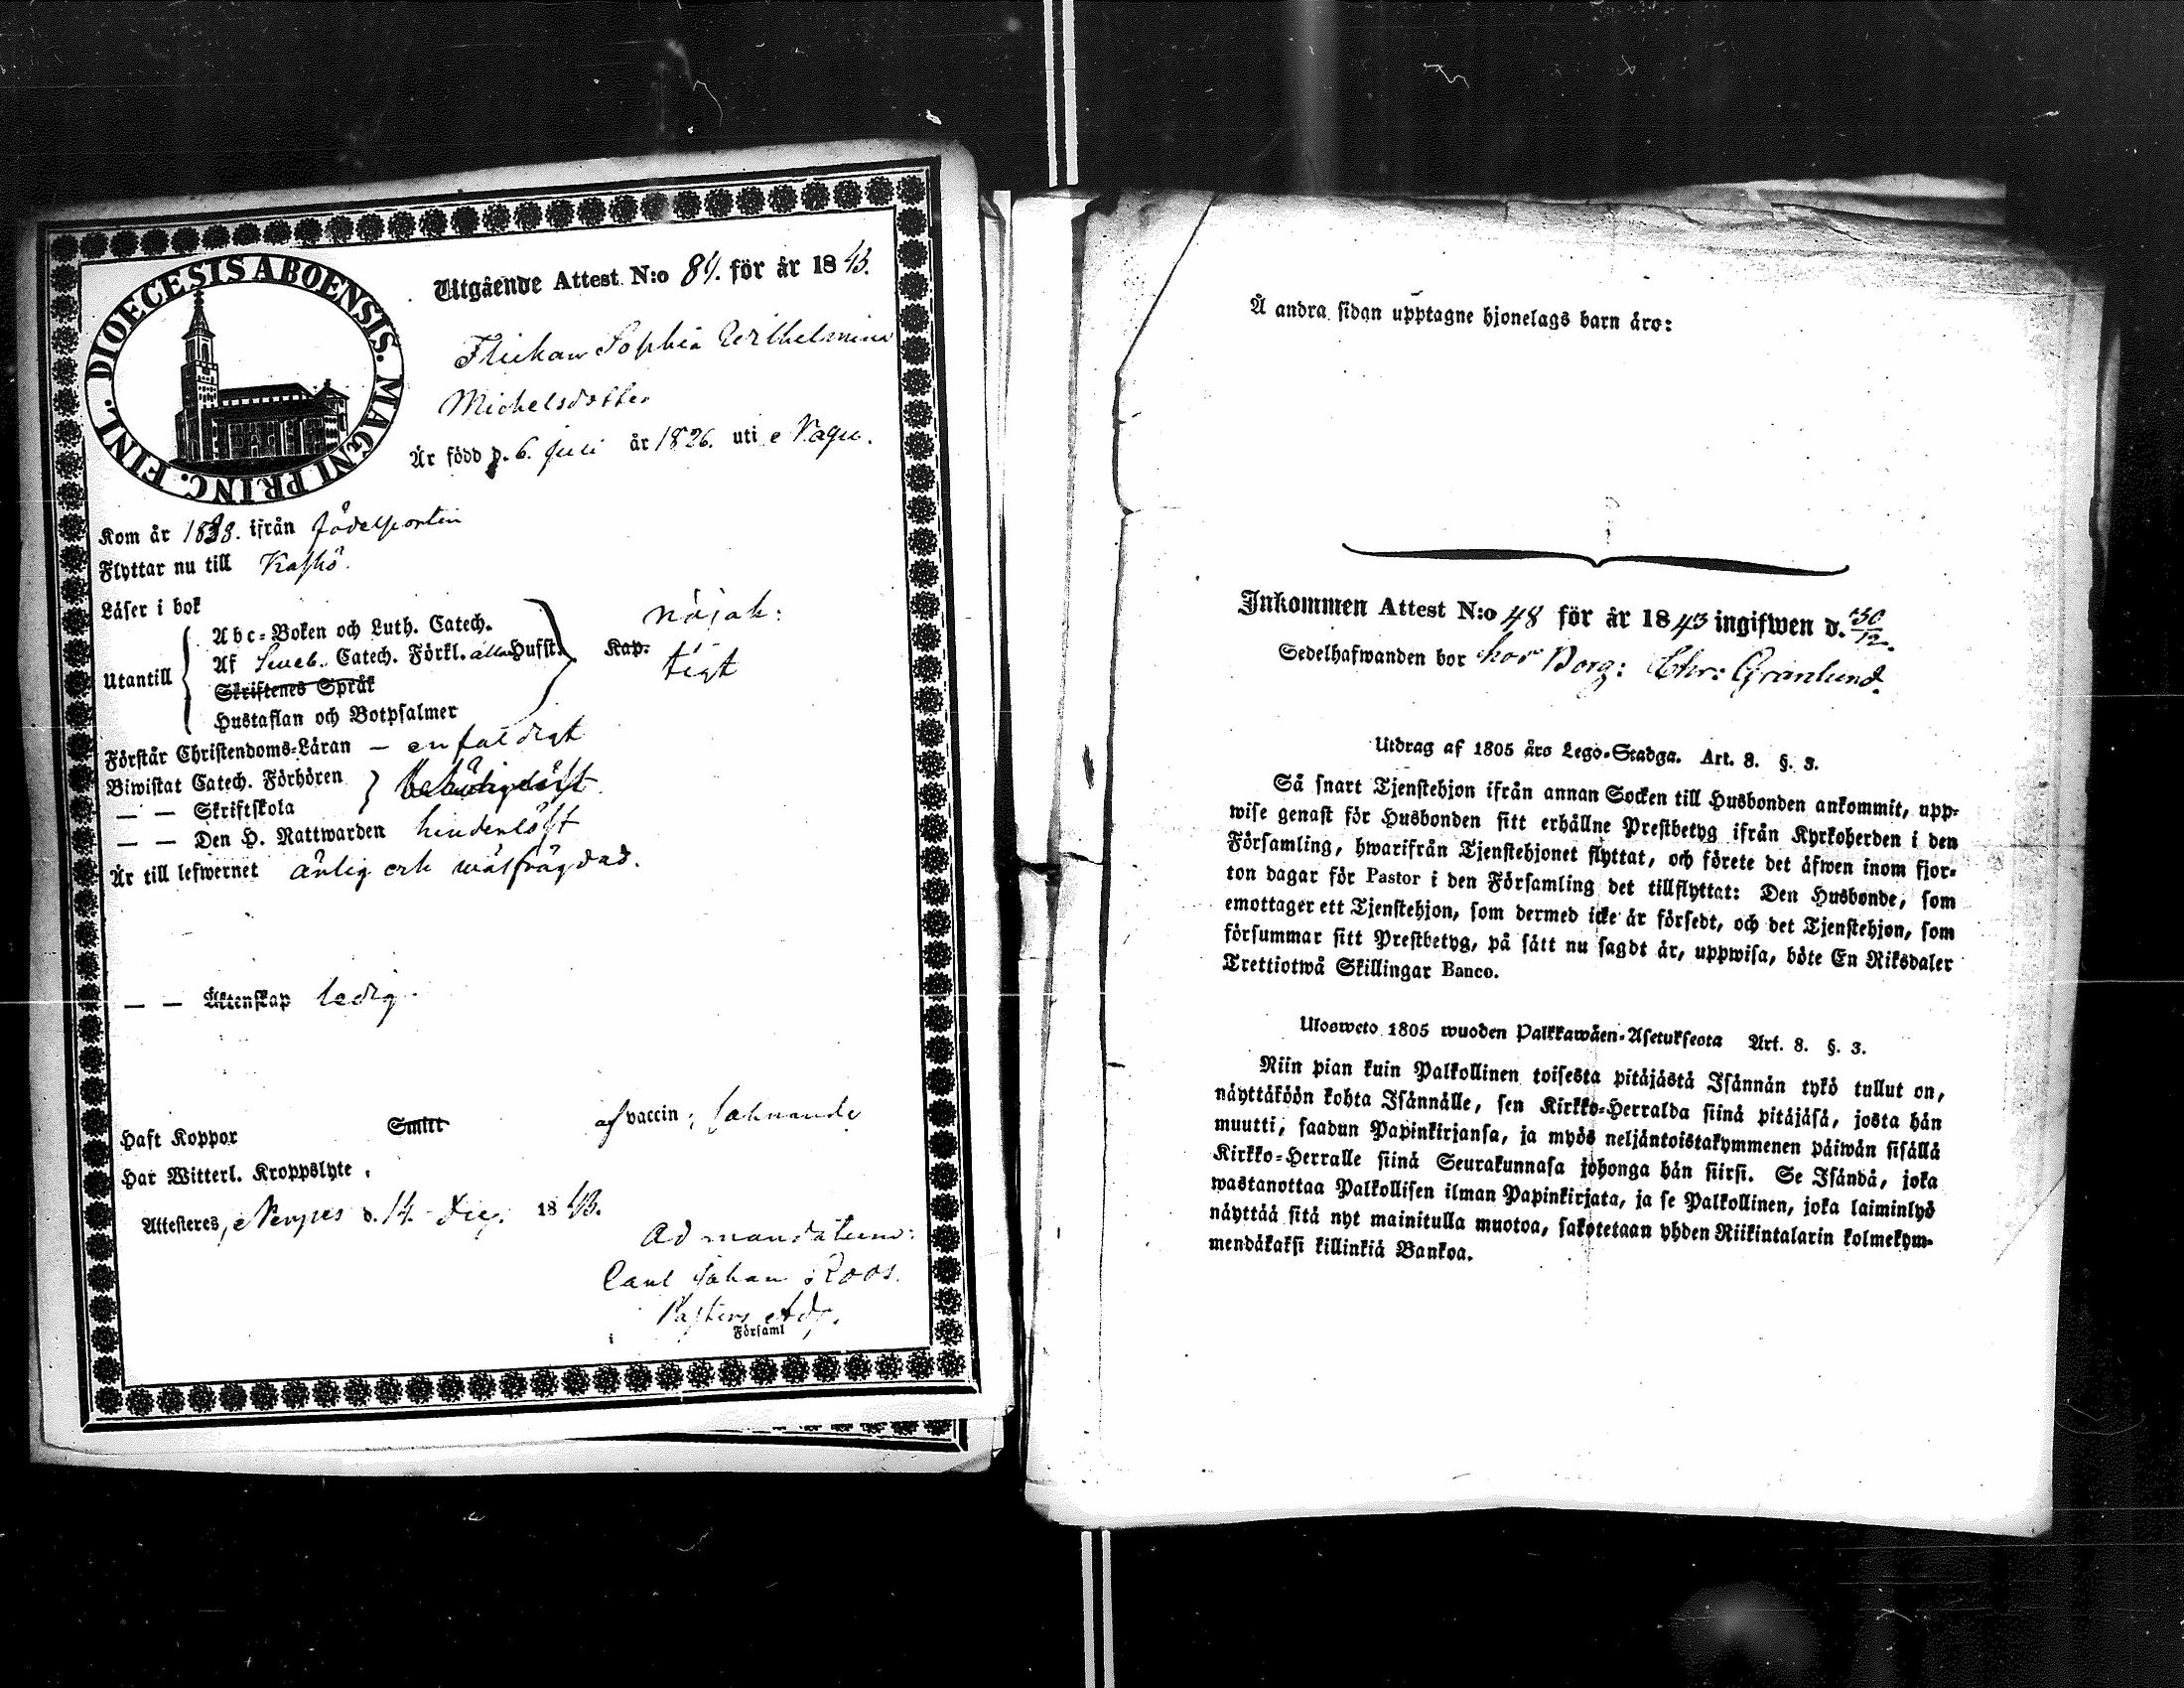 DIOECESIS ABOENSIS. MAGNI PRINC. FINL.
Utgående Attest N:o 84. för år 1843.
Flickan Sophia Wilhelmina
Michelsdotter
Är född d. 6. juli år 1826. uti Nagu.
Kom år 1838. ifrån födelseorten
Flyttar nu till Kaskö.
Läser i bok
Utantill
Abc-Boken och Luth. Catech.
Af Sveb. Catech. Förkl. alla Hufst.
Skriftenes Språk
Hustaflan och Botpsalmer
Kap.
nöjak:
tigt
Förstår Christendoms-Läran — enfaldigt
Biwistat Catech. Förhören
— — Skriftskola
— — Den H. Nattwarden hinderlöst
Är till lefwernet ärlig och wälfrägdad.
— — Äktenskap ledig.
Haft Koppor Smitt af vaccin: saknande
Har Witterl. Kroppslyte.
Attesteres, Nerpes d. 14. Dec. 1843.
Ad mandatum:
Carl Johan Roos.
Pastors Adj.
i Församl
Å andra sidan upptagne hjonelags barn äro:
Inkommen Attest N:o 48 för år 1843 ingifwen d. 30/12.
Sedelhafwanden bor hos Borg: Chr: Granlund.
Utdrag af 1805 års Lego-Stadga. Art. 8. §. 3.
Så snart Tjenstehjon ifrån annan Socken till Husbonden ankommit, upp-
wise genast för Husbonden sitt erhållne Prestbetyg ifrån Kyrkoherden i den
Församling, hwarifrån Tjenstehjonet flyttat, och förete det äfwen inom fjor-
ton dagar för Pastor i den Församling det tillflyttat: Den Husbonde, som
emottager ett Tjenstehjon, som dermed icke är försedt, och det Tjenstehjon, som
försummar sitt Prestbetyg, på sätt nu sagdt är, uppwisa, böte En Riksdaler
Trettiotwå Skillingar Banco.
Ulosweto 1805 wuoden Palkkawäen-Asetuksesta Art. 8. §. 3.
Niin pian kuin Palkollinen toisesta pitäjästä Isännän tykö tullut on,
näyttäköön kohta Isännälle, sen Kirkko-Herralda siinä pitäjäsä, josta hän
muutti, saadun Papinkirjansa, ja myös neljäntoistakymmenen päiwän sisällä
Kirkko-Herralle siinä Seurakunnasa johonga hän siirsi. Se Isändä, joka
wastanottaa Palkollisen ilman Papinkirjata, ja se Palkollinen, joka laiminlyö
näyttää sitä nyt mainitulla muotoa, sakotetaan yhden Riikintalarin kolmekym-
mendäkaksi killinkiä Bankoa.